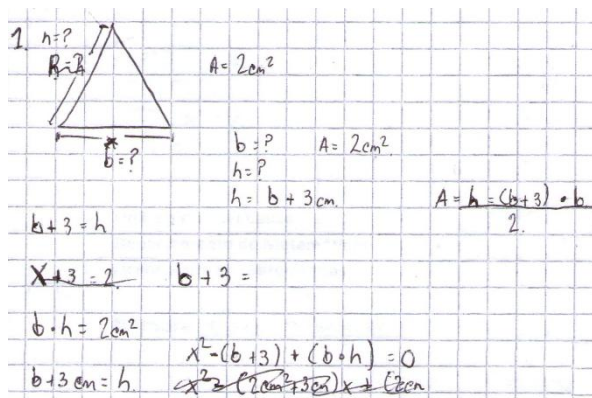 1. h=?
A= 2cm²
b=?
b=? A= 2cm².
h=?
h= b+3cm.
A= h=(b+3)•b
2.
b+3=h
X+3=2. b+3=
b•h= 2cm²
x²-(b+3)+(b•h)=0
b+3cm=h.
x²-(2cm²+3cm)x+(2cm